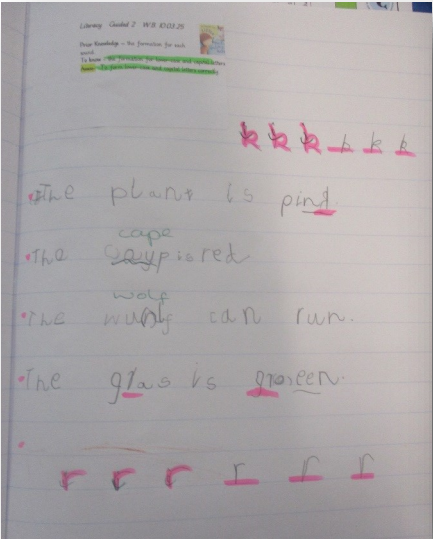 Literacy Guided 2 WB 10.03.25
Prior Knowledge - the formation for each
word.
To know - the formation for lower case and capital letters
To form lower case and capital letters correctly
k k k k k k
The plant is pind.
cape
The is red
wolf
The can run.
The glas is
r r r r r r